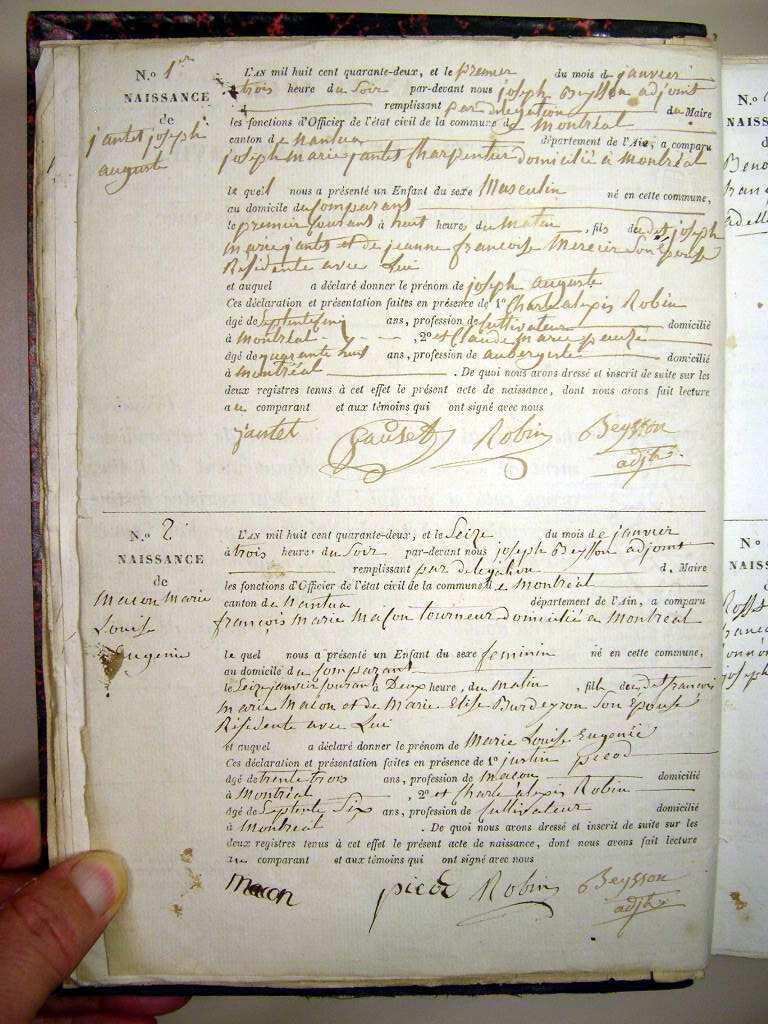 N.o 1er
NAISSANCE
de
jantet joseph
auguste
L'AN mil huit cent quarante-deux, et le premier du mois de janvier
à trois heure du Soir par-devant nous joseph Beysson adjoint
remplissant par délégation du Maire
les fonctions d'Officier de l'état civil de la commune de Montréal
canton de nantua département de l'Ain, a comparu
joseph marie jantet Charpentier domicilié à Montréal
le quel nous a présenté un Enfant du sexe Masculin né en cette commune,
au domicile du Comparant
le premier Courant à huit heures du matin, fils du dit joseph
marie jantet et de jeanne francoise Mercier Son Epouse
Résidente avec Lui
et auquel a déclaré donner le prénom de joseph auguste
Ces déclaration et présentation faites en présence de 1o Charle alexis Robin
âgé de ans, profession de Cultivateur domicilié
à Montréal, 2o et Claude marie
âgé de quarante huit ans, profession de aubergiste domicilié
à Montréal. De quoi nous avons dressé et inscrit de suite sur les
deux registres tenus à cet effet le présent acte de naissance, dont nous avons fait lecture
au comparant et aux témoins qui ont signé avec nous
jantet Robin Beysson
adjt
N.o 2
NAISSANCE
de
Macon Marie
Louise
Eugenie
L'AN mil huit cent quarante-deux, et le Seize du mois de janvier
à trois heures du Soir par-devant nous joseph Beysson adjoint
remplissant par délégation d. Maire
les fonctions d'Officier de l'état civil de la commune de Montréal
canton de nantua département de l'Ain, a comparu
françois marie Macon tourneur domicilié à Montréal
le quel nous a présenté un Enfant du sexe feminin né en cette commune,
au domicile du Comparant
le Seize janvier Courant à Deux heure, du matin, fille du dit francois
marie Macon et de Marie Elise Burdeyron Son Epouse
Résidente avec Lui
et auquel a déclaré donner le prénom de Marie Louise Eugenie
Ces déclaration et présentation faites en présence de 1o justin picod
âgé de trente trois ans, profession de Macon domicilié
à Montréal, 2o et Charle alexis Robin
âgé de Septente Six ans, profession de Cultivateur domicilié
à Montréal. De quoi nous avons dressé et inscrit de suite sur les
deux registres tenus à cet effet le présent acte de naissance, dont nous avons fait lecture
au comparant et aux témoins qui ont signé avec nous
macon picod Robin Beysson
adjt